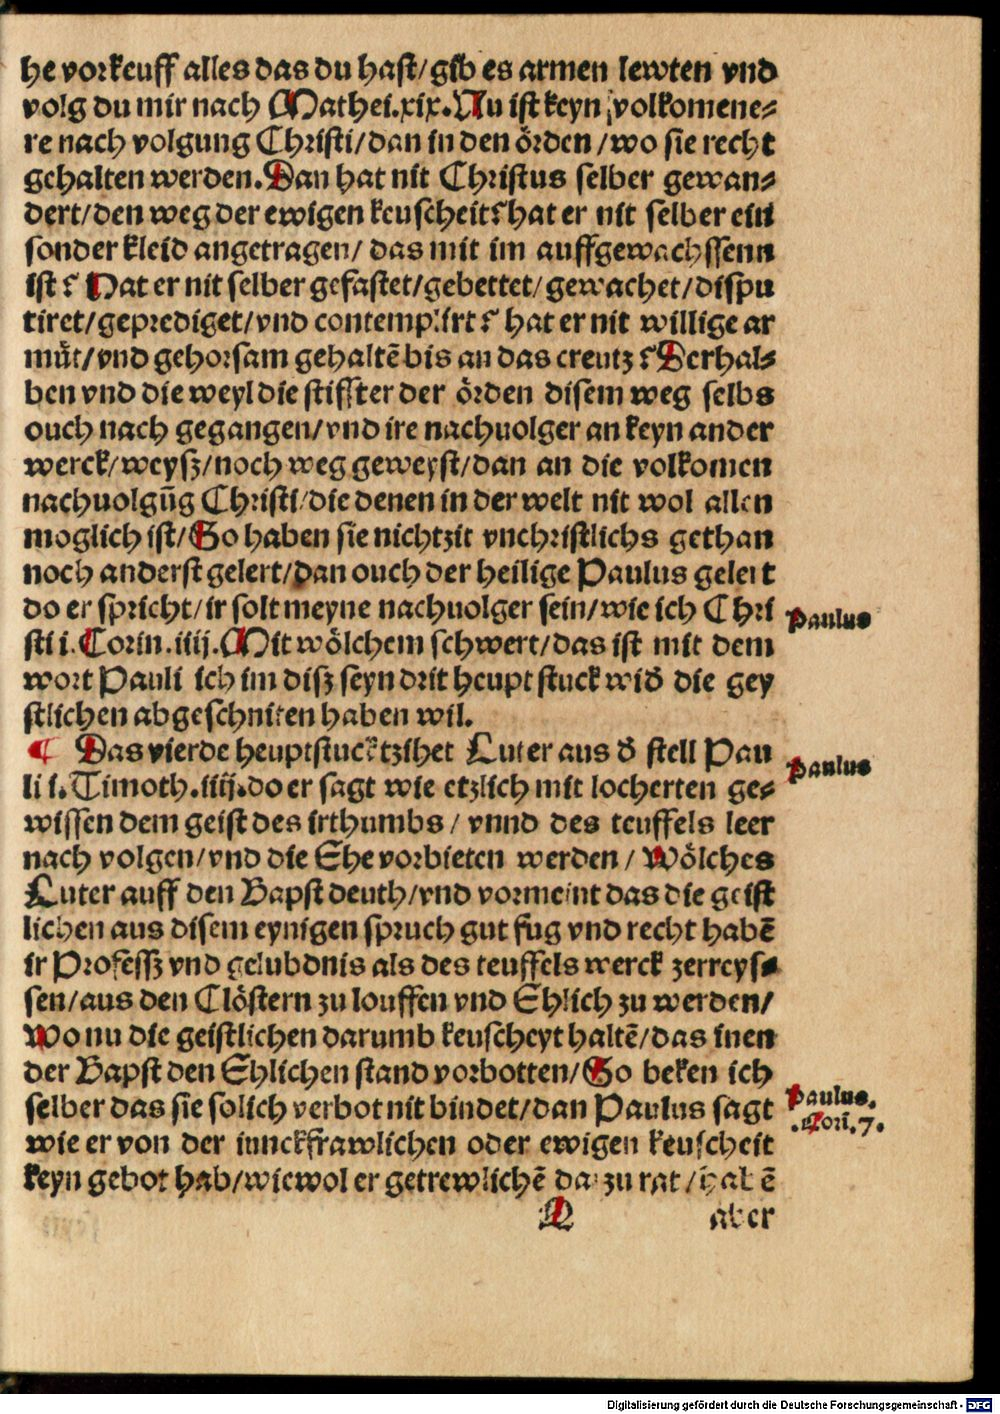 he vorkeuff alles das du hast/gib es armen lewten vnd
volg du mir nach Mathei.xix.Nu ist keyn volkomene⸗
re nach volgung Christi/dan in den örden/wo sie recht
gehalten werden.Dan hat nit Christus selber gewan⸗
dert/den weg der ewigen keuscheit? hat er nit selber ein
sonder kleid angetragen/ das mit im auffgewachssenn
ist? Hat er nit selber gefastet/gebettet/gewachet/dispu
tiret/geprediget/vnd contemplirt? hat er nit willige ar
muͤt/vnd gehorsam gehaltē bis an das creutz? Derhal⸗
ben vnd die weyl die stiffter der örden disem weg selbs
ouch nach gegangen/vnd ire nachuolger an keyn ander
werck/weysz/noch weg geweyst/dan an die volkomen
nachuolgūg Christi/die denen in der welt nit wol allen
moglich ist/So haben sie nichtzit vnchristlichs gethan
noch anderst gelert/dan ouch der heilige Paulus gelert
do er spricht/ir solt meyne nachuolger sein/wie ich Chri
sti i.Corin.iiij.Mit wölchem schwert/das ist mit dem
wort Pauli ich im disz seyn drit heupt stuck wid' die gey
stlichen abgeschniten haben wil.
¶ Das vierde heuptstuck tzihet Luter aus d' stell Pau
li i.Timoth.iiij.do er sagt wie etzlich mit locherten ge⸗
wissen dem geist des irthumbs/ vnnd des teuffels leer
nach volgen/vnd die Ehe vorbieten werden/ Wölches
Luter auff den Bapst deuth/vnd vormeint das die geist
lichen aus disem eynigen spruch gut fug vnd recht habē
ir Professz vnd gelubdnis als des teuffels werck zerreys⸗
sen/aus den Clöstern zu louffen vnd Ehlich zu werden/
Wo nu die geistlichen darumb keuscheyt haltē/das inen
der Bapst den Ehlichen stand vorbotten/So beken ich
selber das sie solich verbot nit bindet/dan Paulus sagt
wie er von der iunckfrawlichen oder ewigen keuscheit
keyn gebot hab/wiewol er getrewlichē da zu rat/habē
aber
Paulus
Paulus
Paulus.
.Cori.7.
Digitalisierung gefördert durch die Deutsche Forschungsgemeinschaft - DFG